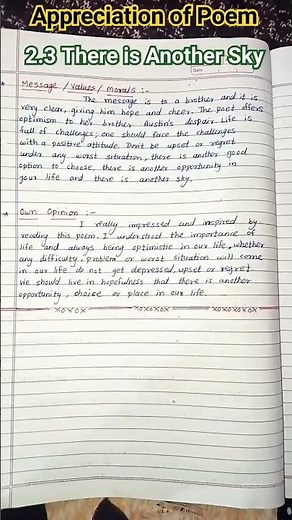 Appreciation of Poem
2.3 There is Another Sky
Date
Message / Values / Morals :-
The message is to a brother and it is
very clear, giving him hope and cheer. The poet offers
optimism to her brother Austin's despair. Life is
full of challenges, one should face the challenges
with a positive attitude. Don't be upset or regret
under any worst situation, there is another good
option to choose, there is another opportunity in
your life and there is another sky.
Own Opinion :-
I really impressed and inspired by
reading this poem. I understood the importance of
life and always being optimistic in our life, whether
any difficulty, problem or worst situation will come
in our life do not get depressed, upset or regret.
We should live in hopefulness that there is another
opportunity, choice or place in our life.
xoxox xoxoxox xoxoxox